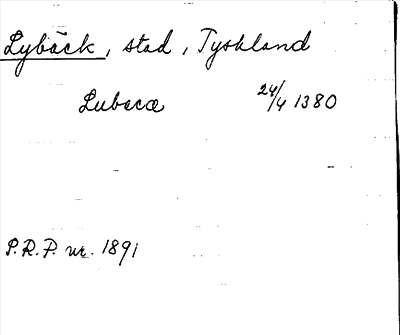 Lybäck, stad, Tyskland
Lubecæ 24/4 1380
P.R.P. nr. 1891